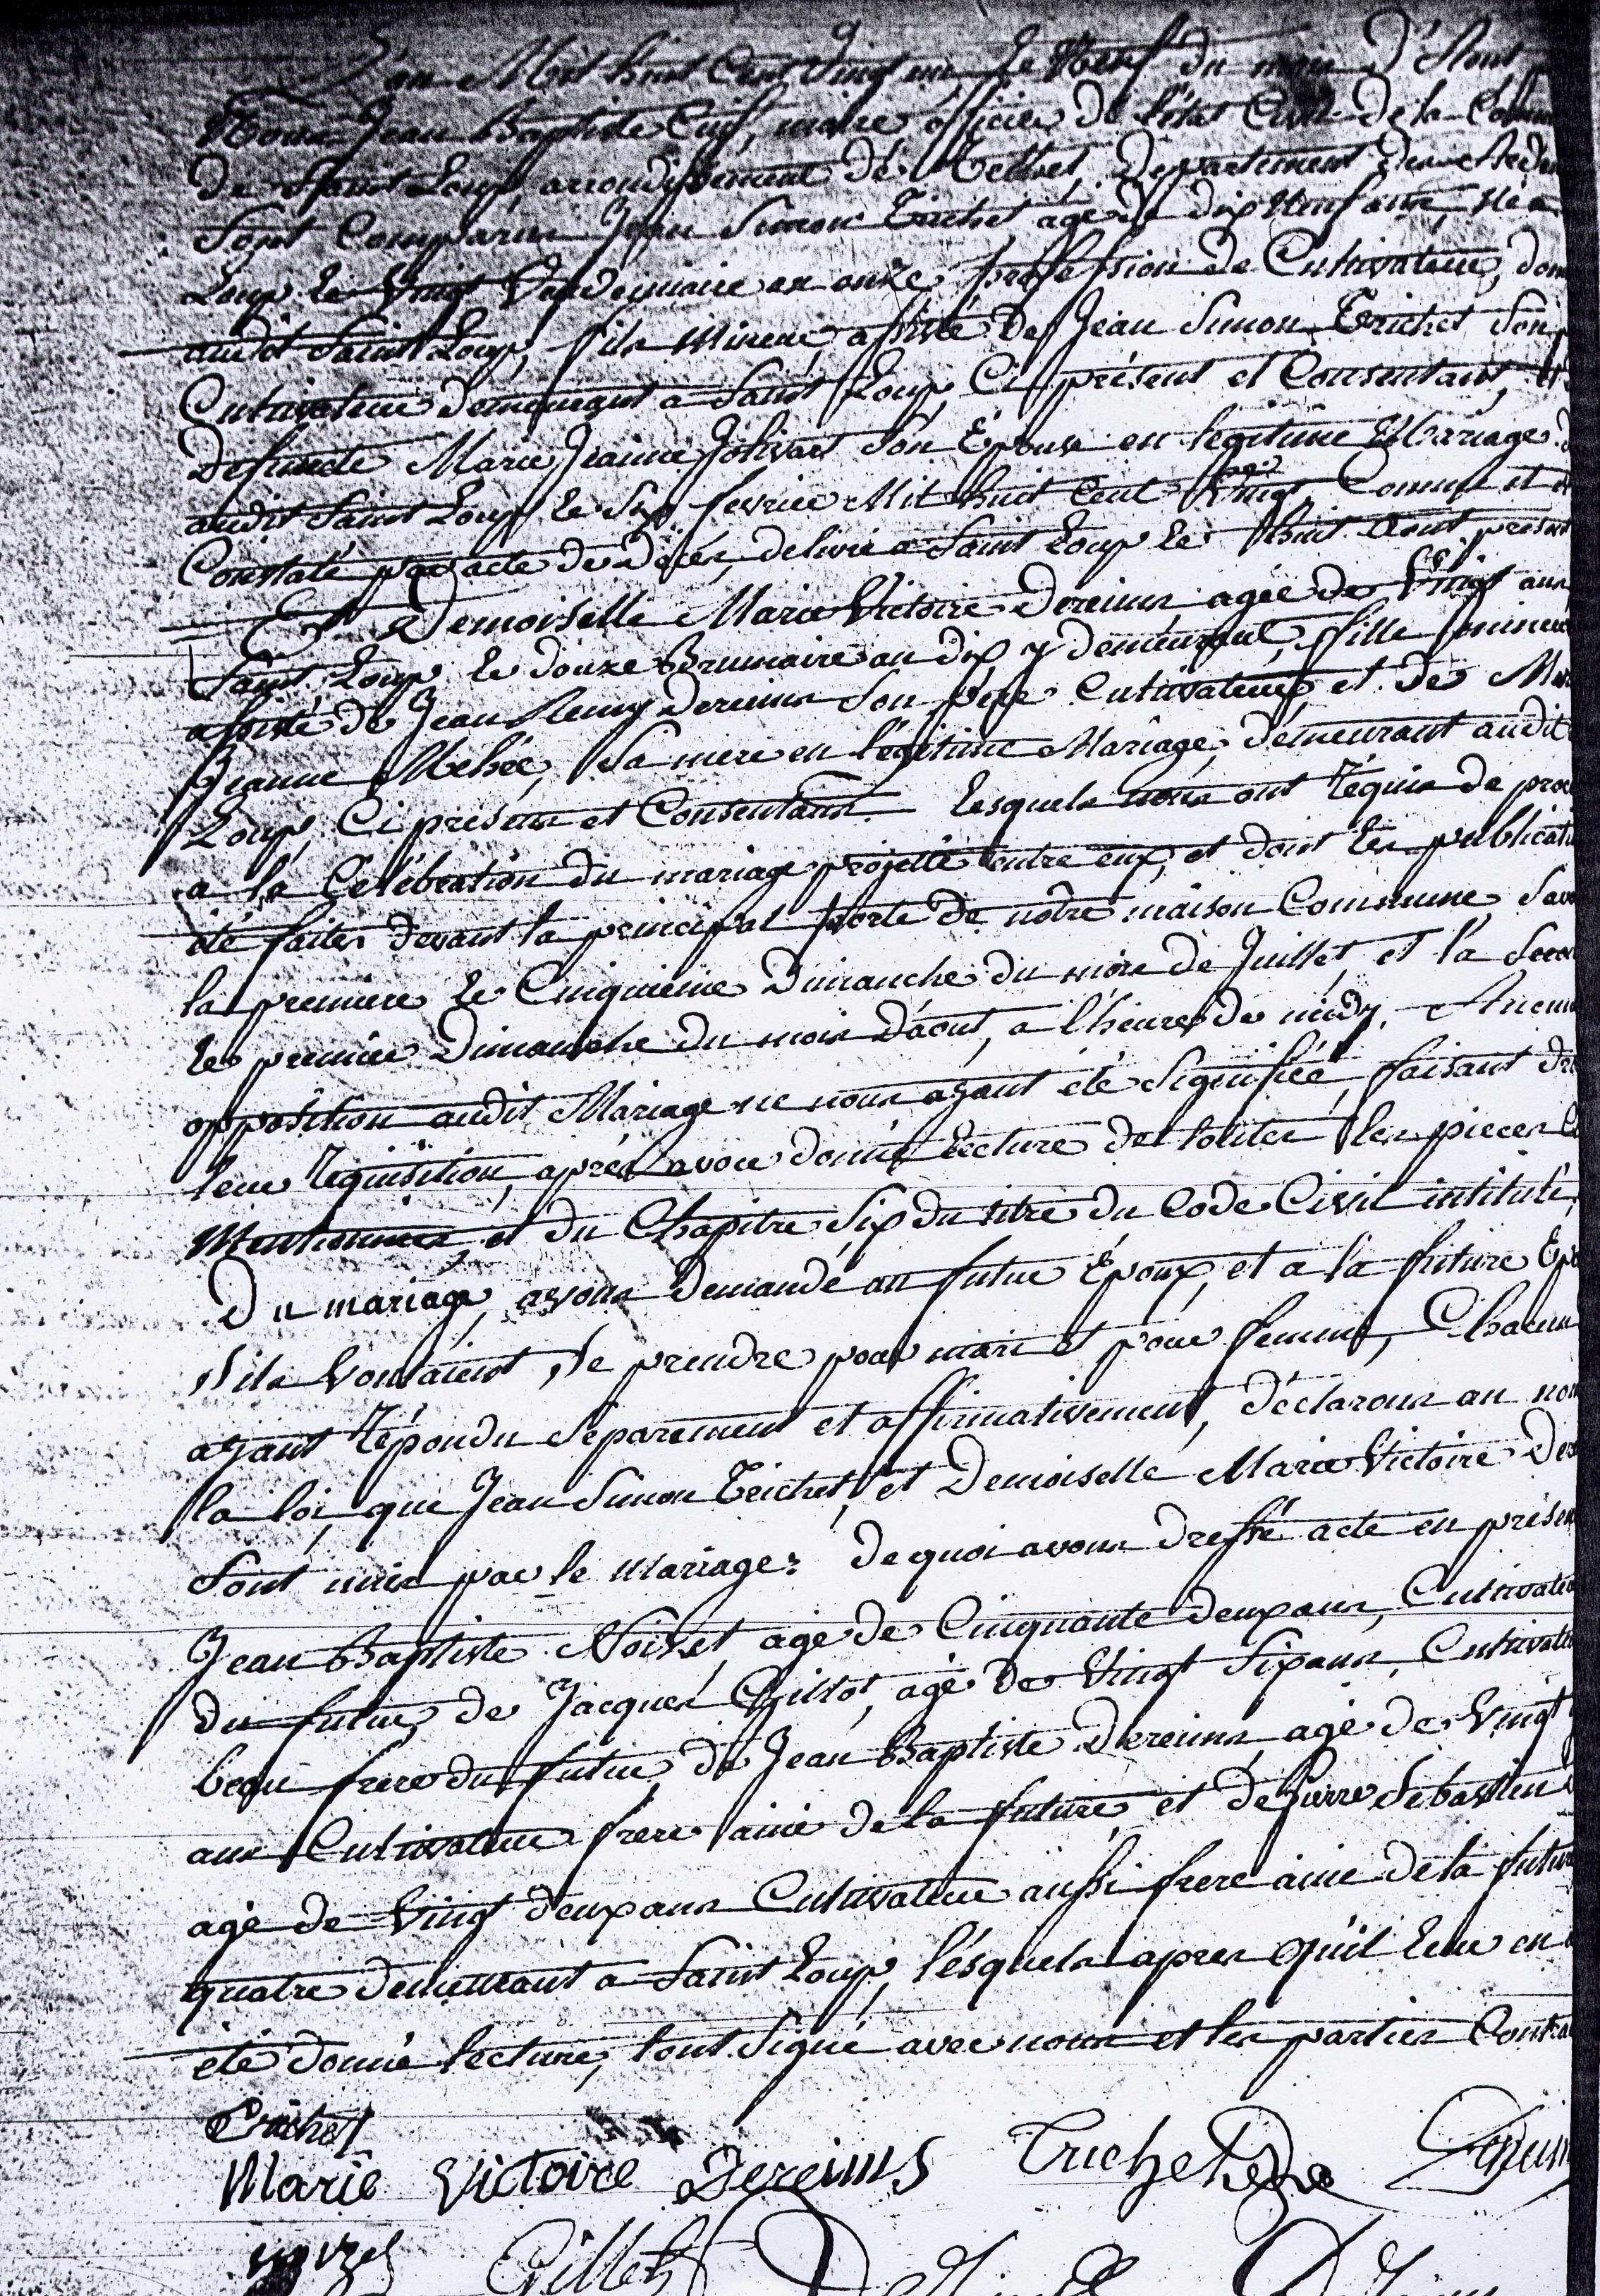 L'an Mil huit Cent Vingt un, le Neuf du mois D'Aout
Nous Jean Baptiste Cuif, maire officier de l'état Civil de la Comm
de Saint Loup, arrondissement de Rethel, Département des Arden
Sont Comparus Jean Simon Trichet agé de dix Neuf ans, Né a
Loup le Vingt Vendemiaire an onze, profession de Cultivateur, dom
audit Saint Loup, fils Mineur, assisté de Jean Simon Trichet Son
Cultivateur demeurant a Saint Loup, Ci présent et Consentant, et
Defuncte Marie Jeanne Jolivart Son Épouse en legitime Mariage
audit Saint Loup le Six fevrier Mil huit Cent Vingt, Comme il
Constaté par acte de Décès, delivré a Saint Loup le huit Aout présent
Et Demoiselle Marie Victoire Dereims, agée de Vingt ans
Saint Loup le douze Brumaire an dix y demeurant, fille mineu
assisté de Jean Remy Dereims Son père Cultivateur, et de Mar
Jeanne Mehée, Sa mere en légitime Mariage, demeurant audit
Loup, Ci présens et Consentans. Lesquels nous ont Réquis de pro
a la Célébration du mariage projetté entre eux, et dont les publicati
été faites devant la principal porte de notre maison Commune, Savo
la premiere le Cinquieme Dimanche du mois de Juillet, et la Seco
le premier Dimanche du mois d'aout, a l'heure de midy. Aucun
opposition audit Mariage ne nous ayant été Signifiée, faisant dr
leur Requisition, après avoir donné lecture de toutes les pieces
Mentionnées et du Chapitre Six du titre du Code Civil intitulé,
Du mariage, avons Demandé au futur Époux, et a la future Épo
S'ils Voulaient Se prendre pour mari et pour femme, Chacun
ayant Répondu Séparement et affirmativement, déclarons au nom
la loi, que Jean Simon Trichet, et Demoiselle Marie Victoire Der
Sont unis par le Mariage: de quoi avons dressé acte en présen
Jean Baptiste Noizet, agé de Cinquante deux ans, Cultivate
du futur, de Jacques Gillot, agé de Vingt Six ans, Cultivate
beau frere du futur, de Jean Baptiste Dereims agé de Vingt
ans Cultivateur frere ainé de la future, et de Pierre Sébastien
agé de Vingt deux ans Cultivateur aussi frere ainé de la futur
quatre demeurant a Saint Loup, lésquels apres qu'il leur en
été donné lecture, l'ont Signé avec nous et les parties Contra
Trichet
Marie Victoire Dereims Trichet Dereims
noizet Gillot